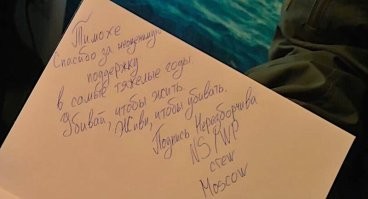 Тимохе
Спасибо за неоценимую
поддержку
в самые тяжелые годы.
Убивай, чтобы жить.
Живи, чтобы убивать.
Подпись Неразборчива
NS/WP
crew
Moscow